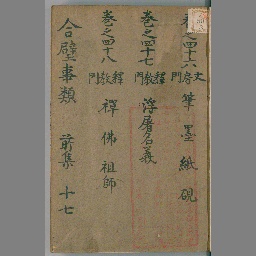 卷之四十六 文房門 筆墨紙硯
卷之四十七 釋教門 浮屠名義
卷之四十八 釋教門 禪佛祖師
合璧事類 前集 十七